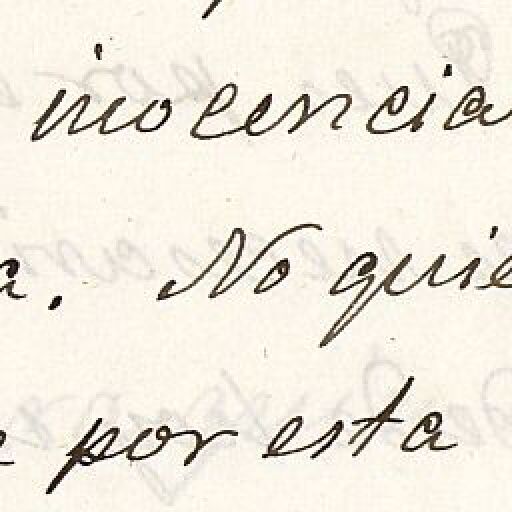 inocencia
a. No quie
e por esta